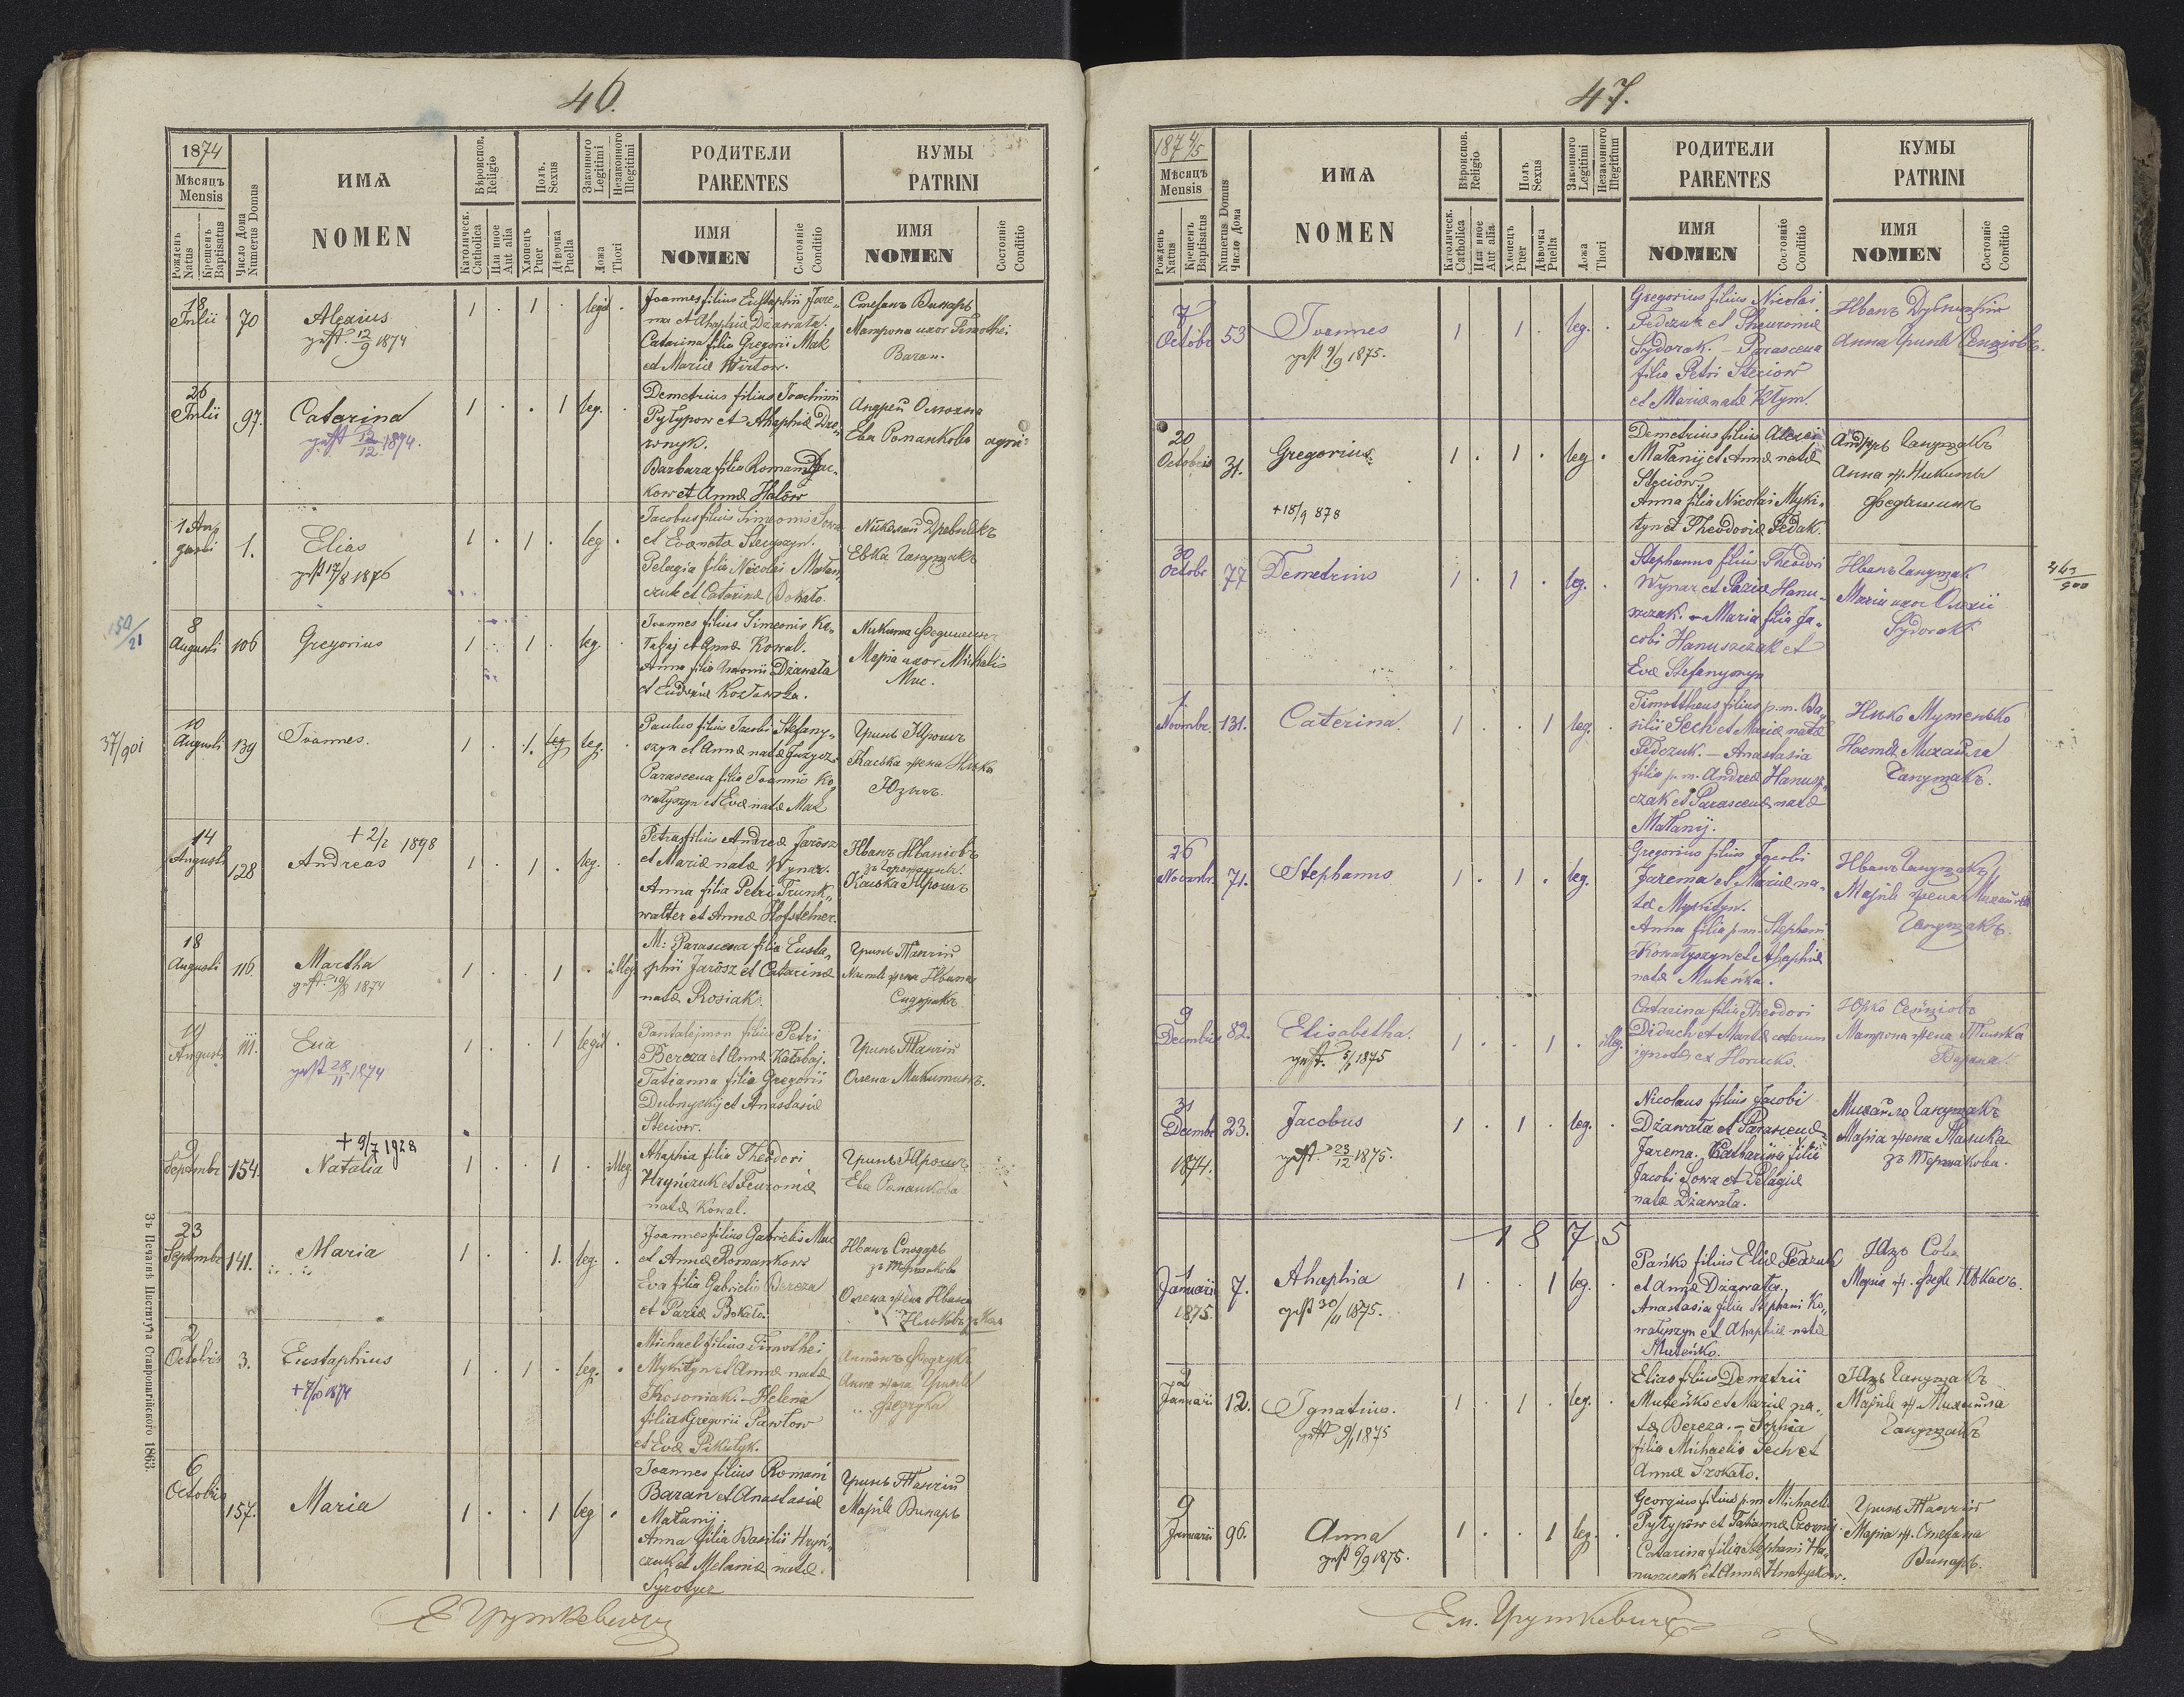 46.
1874
Мѣсяцъ
Mensis
Рожденъ
Natus
Крещенъ
Baptisatus
Число Дома
Numerus Domus
ИМѦ
NOMEN
Вѣроиспов.
Religio
Католическ.
Catholica
Или иное
Aut alia
Полъ.
Sexus
Хлопецъ
Puer
Дѣвочка
Puella
Законного
Legitimi
Незаконного
Illegitimi
Ложа
Thori
РОДИТЕЛИ
PARENTES
ИМЯ
NOMEN
Состояніе
Conditio
КУМЫ
PATRINI
ИМЯ
NOMEN
Состояніе
Conditio
18
Julii
70
Alexius
12/9 1874
1 . 1 . legit .
Joannes filius Eustaphii Jare-
ma et Ahaphiæ Dzawała.
Catarina filia Gregorii Mak
et Mariæ Wirtow.
Стефанъ Винаръ
Матрона uxor Timothei
Baran.
26
Julii
97.
Catarina
12/12 1874.
1 . . 1 leg. .
Demetrius filius Joachimi
Pyłypow et Ahaphiæ Dre-
wnyk.
Barbara filia Romani
kow et Annæ Halów
Андрей
Ева Романкова agri
1 Au
gusti
1.
Elias
17/8 1876
1 . 1 . leg .
Jacobus filius Simeonis Sowa
et Evæ nata Steryszyn.
Pelagia filia Nicolai Matan
czuk et Catarinæ Bokało.
Николай Древнякъ
Евка Ганущакъ
150/21
8
Augusti
106
Gregorius
1 . 1 . leg .
Joannes filius Simeonis Ka-
łabaj et Annæ Kowal.
Anna filia Antonii Dżawała
et Eudociæ Kozłowska.
Никита Федишинъ
Марія uxor Michalis
Мис.
37/901
10
Augusti
139
Joannes.
1 . 1. leg leg. .
Paulus filius Jacobi Stefany-
szyn et Annæ natæ Juzycz
Parascena filia Joannis Ko-
wałyszyn et Evæ natæ Mak
Гринь Ярошъ
Каська жена Илька
Юзичъ.
14
Augusti
128
+ 2/2 1898
Andreas
1 . 1 . leg. .
Petrus filius Andreæ Jarósz
et Mariæ natæ Wynar.
Anna filia Petri Trunk-
walter et Annæ Hofstetner.
Иванъ Иваніовъ
Каська Ярошъ
18
Augusti
116
Martha
19/8 1874
1 . . 1 . illeg
M: Parascena filia Eusta-
phii Jarósz et Catarinæ
natæ Rosiak.
Гринь Танчій
Настя жена Ивана
Сидоракъ
19
Augusti
111.
Eva
28/11 1874
1 . . 1 legit .
Pantalejmon filius Petri
Bereza et Annæ Kałabaj.
Tatianna filia Gregorii
Dubnyckij et Anastasiæ
Steciow.
Гринь Танчій
Олена Микитинъ.
9
Septembr
154.
+ 9/7 1928
Natalia
1 . . 1 . illeg
Ahaphia filia Theodori
Hryńczuk et Feuroniæ
natæ Kowal.
Гринь Ярошъ
Ева Романкова
23
Septembr
141.
Maria
1 . . 1. leg. .
Joannes filius Gabrielis Mac
et Annæ Romankow
Eva filia Gabrielis Bereza
et Pariæ Bokało.
Иванъ Сподаръ
Олена жена Ивана
2
Octobris
3.
Eustaphius
+ 7/10 1874
1 . 1 . leg. .
Michael filius Timothei
Mykityn et Annæ natæ
Kosoniak. - Helena
filia Gregorii Pawłow
et Evæ Pikulyk.
Антонъ Федрукъ
Анна жена Гриня
Федрука
6
Octobris
157.
Maria
1 . . 1 leg .
Joannes filius Romani
Baran et Anastasiæ
Małanij.
Anna filia Basilii Hryń-
czuk et Melaniæ natæ
Syrotycz
Гринь Танчій
Марія Винаръ
Зъ Печатнѣ Института Ставропигійского 1863.
47.
1874/5
Мѣсяцъ
Mensis
Рожденъ
Natus
Крещенъ
Baptisatus
Numerus Domus
Число Дома
ИМѦ
NOMEN
Вѣроиспов.
Religio
Католическ.
Catholica
Или иное
Aut alia
Полъ
Sexus
Хлопецъ
Puer
Дѣвочка
Puella
Законного
Legitimi
Незаконного
Illegitimi
Ложа
Thori
РОДИТЕЛИ
PARENTES
ИМЯ
NOMEN
Состояніе
Conditio
КУМЫ
PATRINI
ИМЯ
NOMEN
Состояніе
Conditio
7
Octobr
53
Joannes
9/9 1875.
1 1 . leg. .
Gregorius filius Nicolai
Fedczuk et Theuroniæ
Sydorak. - Parascena
filia Petri Steciow
et Mariæ natæ Kłym.
Иванъ
Анна Гриня Сенціовъ.
20
Octobris
31.
Gregorius
+ 18/9 878
1 . 1 . leg .
Demetrius filius Alexii
Małanij et Annæ natæ
Steciow.
Anna filia Nicolai Myki-
tyn et Theodoriæ Fedak.
Андръ Ганущакъ
Анна ж. Никиты
Федишинъ
30
Octobr
77
Demetrius
1 . 1 . leg. .
Stephanus filius Theodori
Wynar et Pariæ Hanu-
szczak. - Maria filia Ja-
cobi Hanuszczak et
Evæ Stefanyszyn
Иванъ Ганущак
Maria uxor Олексіи
Sydorak
1
Novembr.
131.
Caterina
1 . . 1 leg. .
Timottheus filius p.m. Ba
silii Sech et Mariæ natæ
Fedczuk. - Anastasia
filia p.m. Andreæ Hanusz-
czak et Parascenæ natæ
Małanij.
Илько Мутенько
Настя Михайла
Ганущакъ.
26
Novembr.
71.
Stephanus
1 . 1 . leg. .
Gregorius filius Jacobi
Jarema et Mariæ na-
tæ Mykityn.
Anna filia p.m. Stephani
Kowałyszyn et Ahaphiæ
natæ Muteńka.
Иванъ Ганущакъ
Марія жена Михайла
Ганущакъ.
9
Decembris
82.
Elisabetha.
5/1 1875
1 . . 1 . illeg.
Catarina filia Theodori
Diduch et Martæ ceterum
ignotæ ex Horucko.
Юрко Сенціовъ
Матрона жена Тимка
31
Decembr
1874.
23.
Jacobus
23/12 1875.
1 . 1 . leg. .
Nicolaus filius Jacobi
Dżawała et Parascenæ
Jarema. Catharina filia
Jacobi Sowa et Pelagiæ
natæ Dżawała.
Михайло Ганущакъ
Марія жена Панька
1875
1
Januarii
1875.
7.
Ahaphia
30/11 1875.
1 . . 1 leg. .
Pańko filius Eliæ Fedczuk
et Annæ Dżawała.
Anastasia filia Stephani Ko-
wałyszyn et Ahaphiæ natæ
Muteńko.
Яць Сова
2
Januarii
12.
Ignatius.
9/1 1875
1 . 1 . leg. .
Elias filius Demetrii
Muteńko et Mariæ na-
tæ Bereza. - Sophia
filia Michaelis Sech et
Annæ Szokało.
Яць Ганущакъ
Марія ж. Михайла
Ганущакъ
9
Januarii
96.
Anna
6/9 1875.
1 . . 1 leg. .
Georgius filius p.m. Michaelis
Pyłypów et Tatiannæ Czornij
Catarina filia Stephani Ha-
nuszczak et Annæ Hnatyszow.
Гринь Танчій
Марія ж. Стефана
Винаръ.